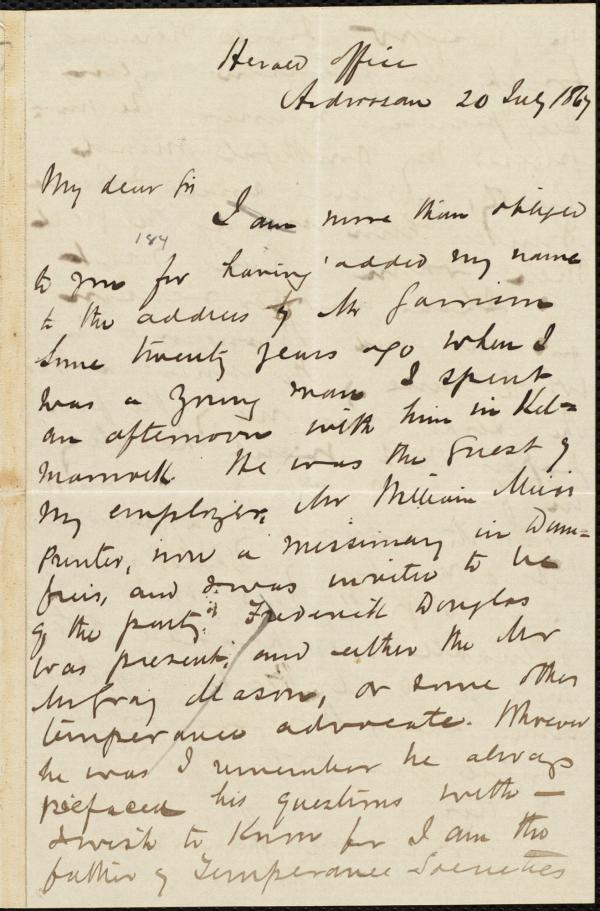 Herald Office
Ardrossan 20 July 1867
My dear Sir
I am more than obliged
184
to you for having added my name
to the address to Mr Garrison
Some twenty years ago when I
was a young man I spent
an afternoon with him in Kil=
marnock. He was the guest of
my employer, Mr William Muir
Printer, now a missionary in Dum=
fries, and I was invited to be
of the party. Frederick Douglas
was present, and either the Mr
Mason, or some other
temperance advocate. Whoever
he was I remember he always
prefaced his questions with —
I wish to know for I am the
father of Temperance Societies